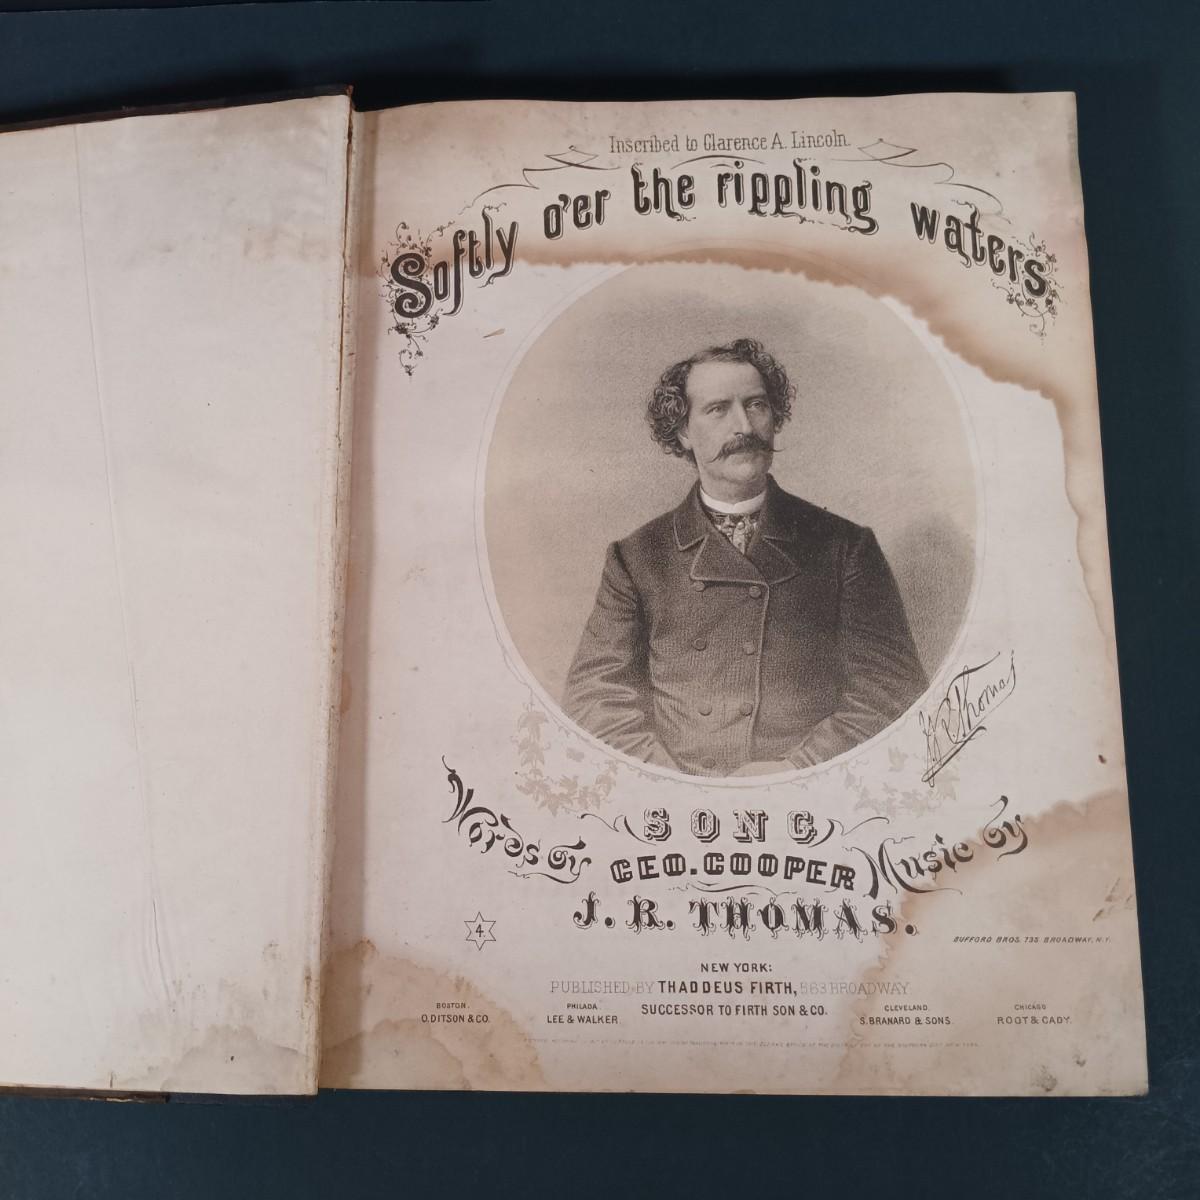 Inscribed to Clarence A. Lincoln.
Softly o'er the rippling waters.
J R Thomas
SONG
Words by GEO. COOPER Music by
J. R. THOMAS.
4.
BUFFORD BROS. 735 BROADWAY, N.Y.
NEW YORK:
PUBLISHED BY THADDEUS FIRTH, 563 BROADWAY.
SUCCESSOR TO FIRTH SON & CO.
BOSTON.
O. DITSON & CO.
PHILADA.
LEE & WALKER
CLEVELAND.
S. BRANARD & SONS.
CHICAGO
ROOT & CADY.